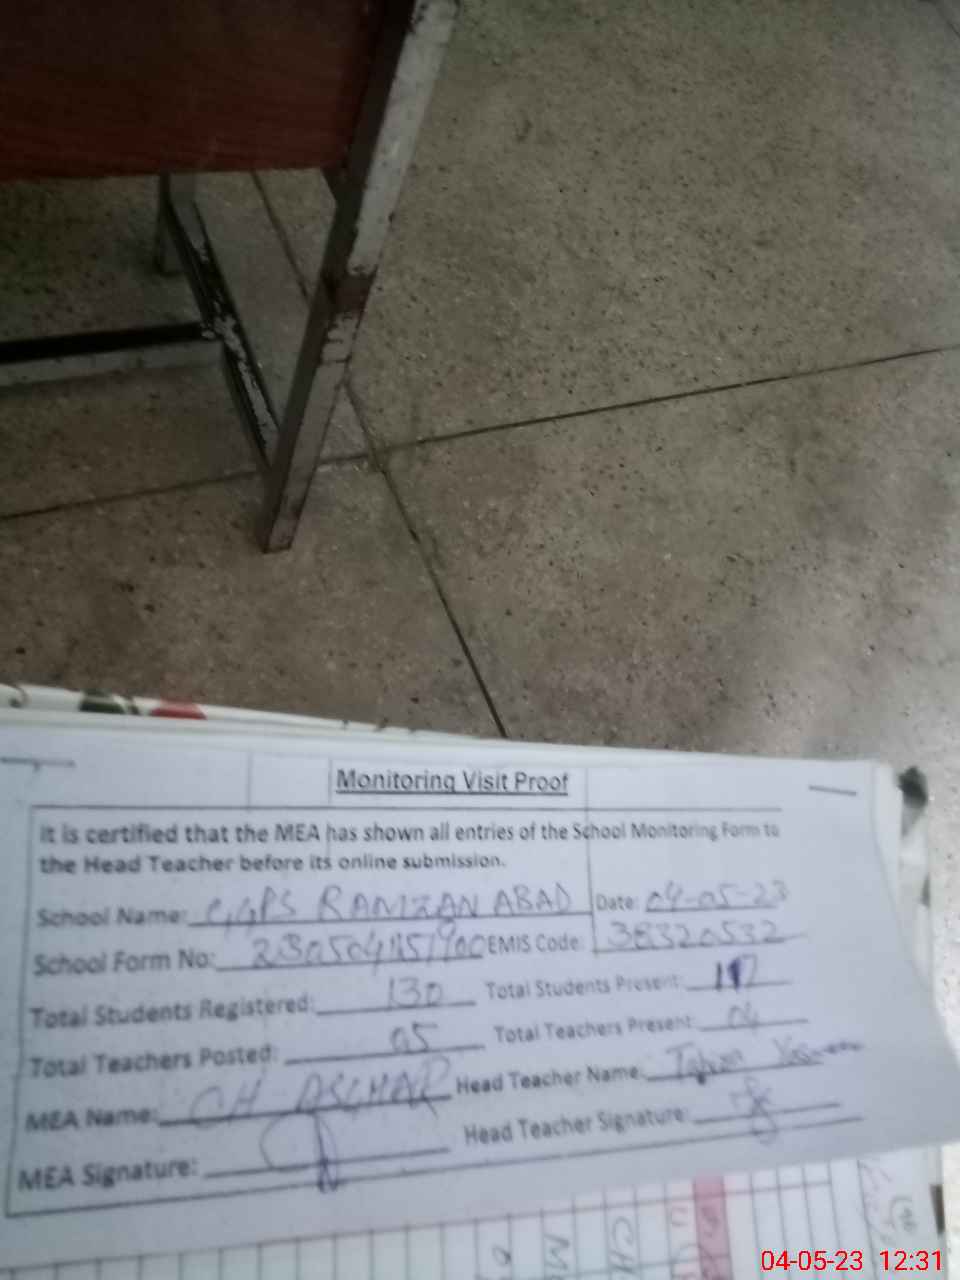 Monitoring Visit Proof
it is certified that the MEA has shown all entries of the School Monitoring Form to
the Head Teacher before its online submission.
School Name: GGPS RAMZAN ABAD Date: 04-05-23
School Form No: EMIS Code: 38320532
Total Students Registered: 130 Total Students Present: 117
Total Teachers Posted: 05 Total Teachers Present: 04
MEA Name: CH ASGHAR Head Teacher Name:
MEA Signature: Head Teacher Signature:
04-05-23 12:31